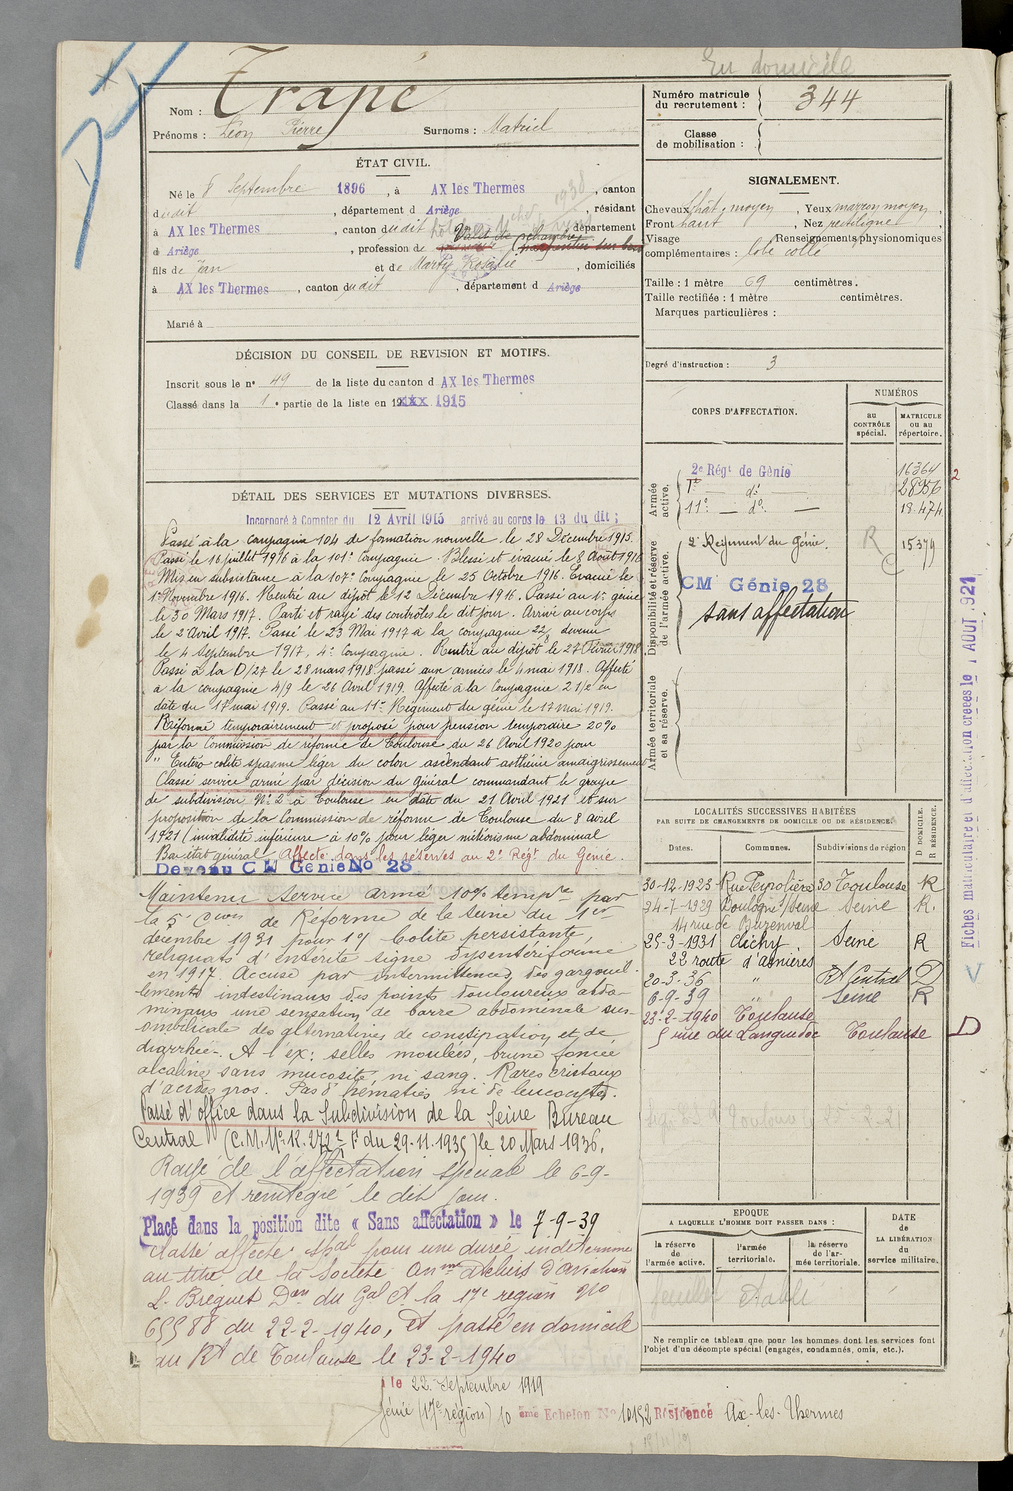 En domicile
Nom : Trapé
Prénoms : Léon Pierre Surnoms : Matriel
Numéro matricule du recrutement : 344
Classe de mobilisation :
ÉTAT CIVIL.
Né le 8 Septembre 1896, à AX les Thermes, canton
dudit, département d Ariège, résidant
à AX les Thermes, canton dudit, département
d Ariège, profession de Valet de chambre
fils de Jean et de Marty Rosalie, domiciliés
à AX les Thermes, canton dudit, département d Ariège
Marié à
DÉCISION DU CONSEIL DE REVISION ET MOTIFS.
Inscrit sous le n° 49 de la liste du canton d AX les Thermes
Classé dans la 1e partie de la liste en 1915
SIGNALEMENT.
Cheveux chât. moyen, Yeux marron moyen,
Front haut, Nez rectiligne
Visage Renseignements physionomiques
complémentaires : lobe collé
Taille : 1 mètre 69 centimètres.
Taille rectifiée : 1 mètre centimètres.
Marques particulières :
Degré d'instruction : 3
CORPS D'AFFECTATION.
NUMÉROS
au CONTRÔLE spécial.
MATRICULE ou au répertoire.
Armée active.
2e Régt de Génie 16364
1er — do — 28956
11e — do — 18474
Disponibilité et réserve de l'armée active.
2e Régiment du Génie. R 15379
CM Génie 28
sans affectation
Armée territoriale et sa réserve.
DÉTAIL DES SERVICES ET MUTATIONS DIVERSES.
Incorporé à Compter du 12 Avril 1915 arrivé au corps le 13 du dit ;
Passé à la compagnie 104 de formation nouvelle le 28 Décembre 1915.
Passé le 16 juillet 1916 à la 101e Compagnie. Blessé et évacué le 8 Août 1916
Mis en subsistance à la 107e Compagnie le 25 Octobre 1916. Evacué le
1er Novembre 1916. Rentré au dépôt le 12 Décembre 1916. Passé au 1er génie
le 30 Mars 1917. Parti et rayé des contrôles le dit jour. Arrivé au corps
le 2 Avril 1917. Passé le 23 Mai 1917 à la compagnie 22/ devenue
le 4 Septembre 1917, 4e Compagnie. Rentré au dépôt le 27 Février 1918
Passé à la D/27 le 28 mars 1918 passé aux armées le 4 mai 1918. Affecté
à la compagnie 4/9 le 26 Avril 1919. Affecté à la Compagnie 21/2 en
date du 17 mai 1919. Passé au 11e Régiment du génie le 17 mai 1919.
Réformé temporairement et proposé pour pension temporaire 20%
par la Commission de réforme de Toulouse du 26 Avril 1920 pour
" Entéro colite spasme léger du colon ascendant asthénie amaigrissement
Classé service armé par décision du Général commandant le groupe
de subdivision N° 2 à Toulouse en date du 21 Avril 1921 et sur
proposition de la Commission de réforme de Toulouse du 8 avril
1921 (invalidité inférieure à 10% pour léger météorisme abdominal
Bon état général. Affecté dans les réserves au 2e Régt du Génie.
Devenu CM Génie No 28
Maintenu Service armé 10% tempre par
la 5e Cion de Réforme de la Seine du 1er
décembre 1931 pour 1°) Colite persistante,
reliquats d'entérite signe dysentériforme
en 1917. Accuse par intermittences des gargouil-
lements intestinaux des points douloureux abdo-
minaux une sensation de barre abdominale sus-
ombilicale des alternatives de constipation et de
diarrhée. A l'ex : selles moulées, brune foncée
alcaline sans mucosité ni sang. Rares cristaux
d'acides gros. Pas d'hématies ni de leucocytes.
Passé d'office dans la Subdivision de la Seine Bureau
Central (C.M. N° K. 2722 F du 29-11-1935) le 20 Mars 1936.
Rayé de l'affectation spéciale le 6-9-
1939 et réintégré le dit jour.
Placé dans la position dite « Sans affectation » le 7-9-39
Classé affecté spal pour une durée indéterminée
au titre de la Société anme Ateliers d'aviation
L. Breguet Don du Gal Ct la 17e région N°
65588 du 22-2-1940, et passé en domicile
au Rt de Toulouse le 23-2-1940
LOCALITÉS SUCCESSIVES HABITÉES
PAR SUITE DE CHANGEMENTS DE DOMICILE OU DE RÉSIDENCE.
Dates. Communes. Subdivisions de région D DOMICILE. R RÉSIDENCE.
30-12-1923 Rue Peyrolières 30 Toulouse R
24-7-1929 Boulogne s/Seine Seine R.
14 rue de Buzenval
25-3-1931 Clichy. Seine R
22 route d'asnières
20-3-36 " Rt Central D
6-9-39 " Seine R
23-2-1940 Toulouse
5 rue du Languedoc Toulouse D
EPOQUE
A LAQUELLE L'HOMME DOIT PASSER DANS :
la réserve de l'armée active.
l'armée territoriale.
la réserve de l'armée territoriale.
DATE de LA LIBÉRATION du service militaire.
feuillet établi
Ne remplir ce tableau que pour les hommes dont les services font
l'objet d'un décompte spécial (engagés, condamnés, omis, etc.).
Fiches matriculaire et d'affectation créées le 1 AOUT 1921
le 22 Septembre 1919
Génie (17e région) 10 ème Echelon No 10152 Résidence Ax-les-Thermes